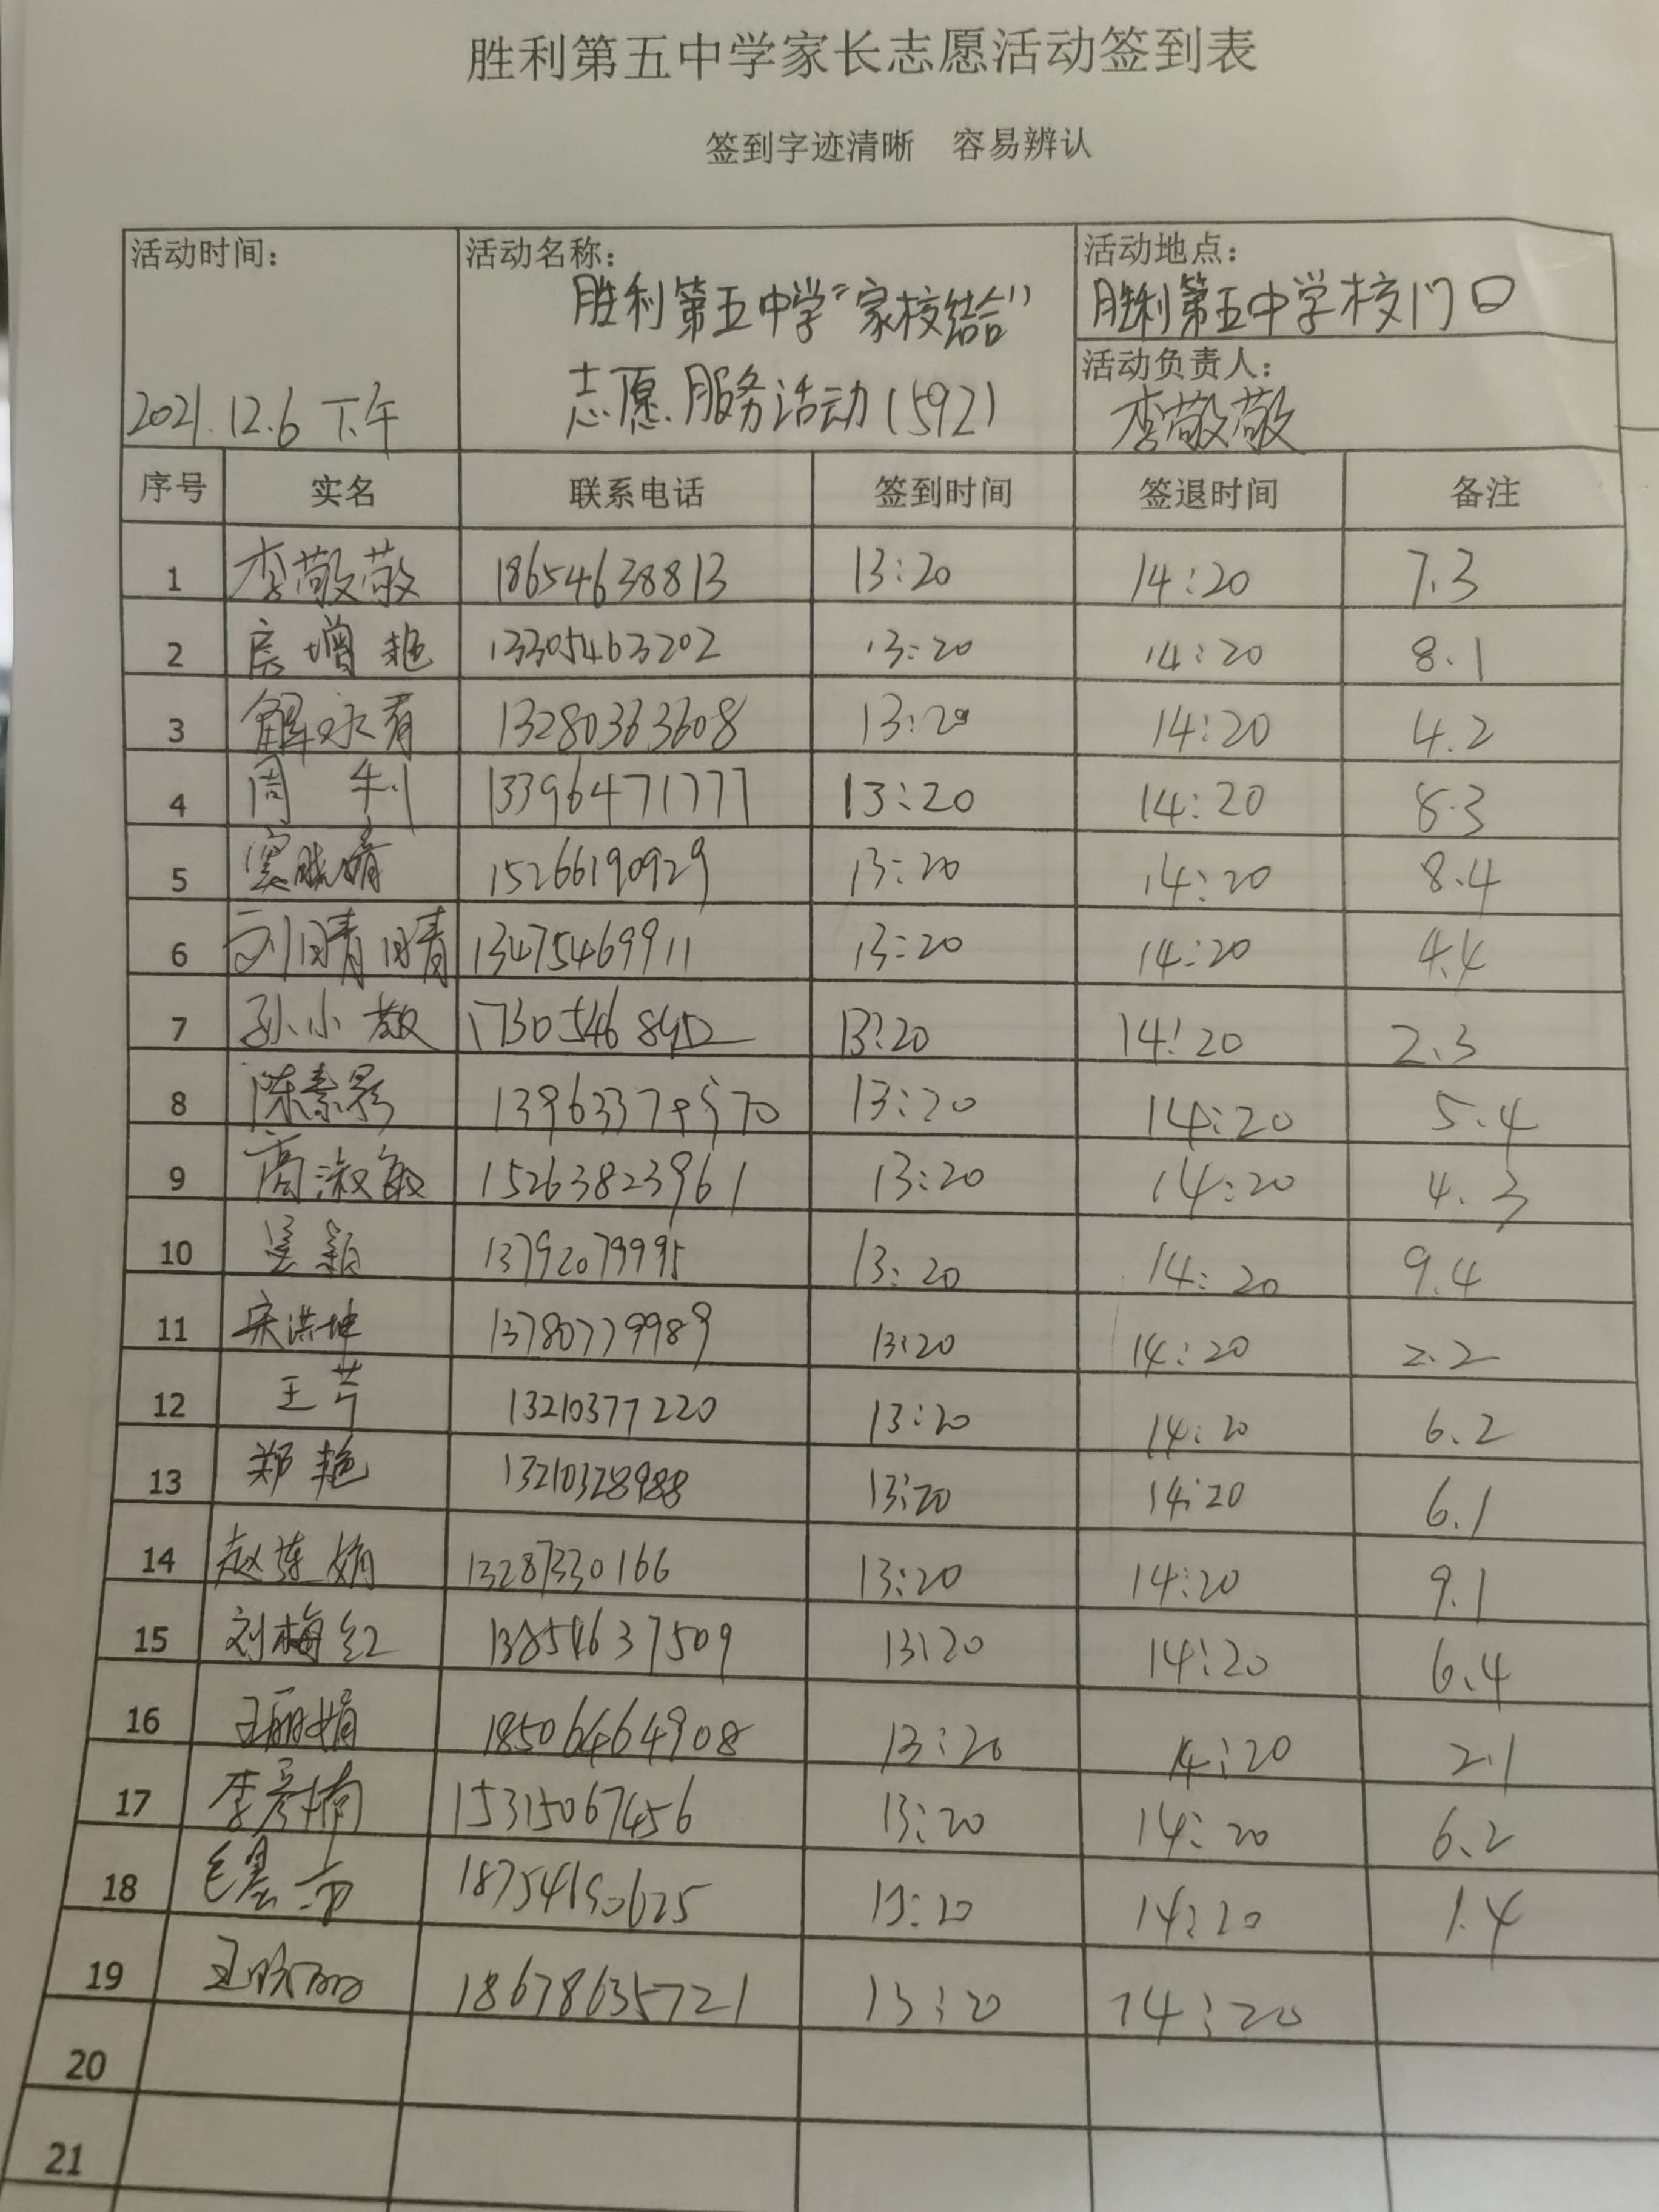 胜利第五中学家长志愿活动签到表
签到字迹清晰 容易辨认
活动时间：
2021.12.6 下午
活动名称：
胜利第五中学“家校结合”
志愿服务活动(592)
活动地点：
胜利第五中学校门口
活动负责人：
李敬敬
序号 实名 联系电话 签到时间 签退时间 备注
1 李敬敬 18654638813 13:20 14:20 7.3
2 房增艳 13305463202 13:20 14:20 8.1
3 解咏春 13280363608 13:20 14:20 4.2
4 周利 13396471777 13:20 14:20 8.3
5 窦晓婧 15266190929 13:20 14:20 8.4
6 刘晴晴 13475469911 13:20 14:20 4.4
7 孙小敬 13:20 14:20 2.3
8 陈素影 13:20 14:20 5.4
9 商淑敏 15263823961 13:20 14:20 4.3
10 13792079995 13:20 14:20 9.4
11 宋洪坤 13780779989 13:20 14:20 2.2
12 王芹 13210377220 13:20 14:20 6.2
13 郑艳 13210328988 13:20 14:20 6.1
14 赵莲娟 13287330166 13:20 14:20 9.1
15 刘梅红 13854637509 13:20 14:20 6.4
16 王丽娟 18506464908 13:20 14:20 2.1
17 李彦楠 15315067456 13:20 14:20 6.2
18 18754150625 13:20 14:20 1.4
19 18678635721 13:20 14:20
20
21